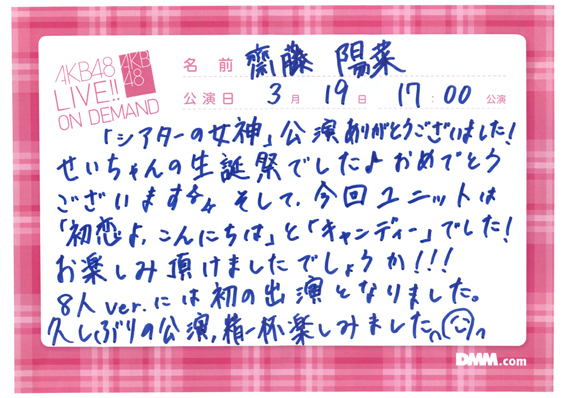 AKB48
LIVE!!
ON DEMAND
AKB
48
名前 齋藤 陽菜
公演日 3月19日 17:00 公演
「シアターの女神」公演ありがとうございました!
せいちゃんの生誕祭でした♪おめでとう
ございます そして、今回ユニットは
「初恋よ、こんにちは」と「キャンディー」でした!
お楽しみ頂けましたでしょうか!!!
8人ver.には初の出演となりました。
久しぶりの公演,精一杯楽しみました
DMM.com